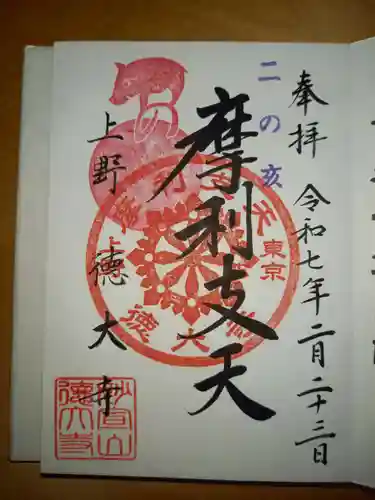 奉拝
令和七年二月二十三日
二の亥
摩利支天
上野
徳大寺
東京
上野
徳大寺
妙宣山
徳大寺